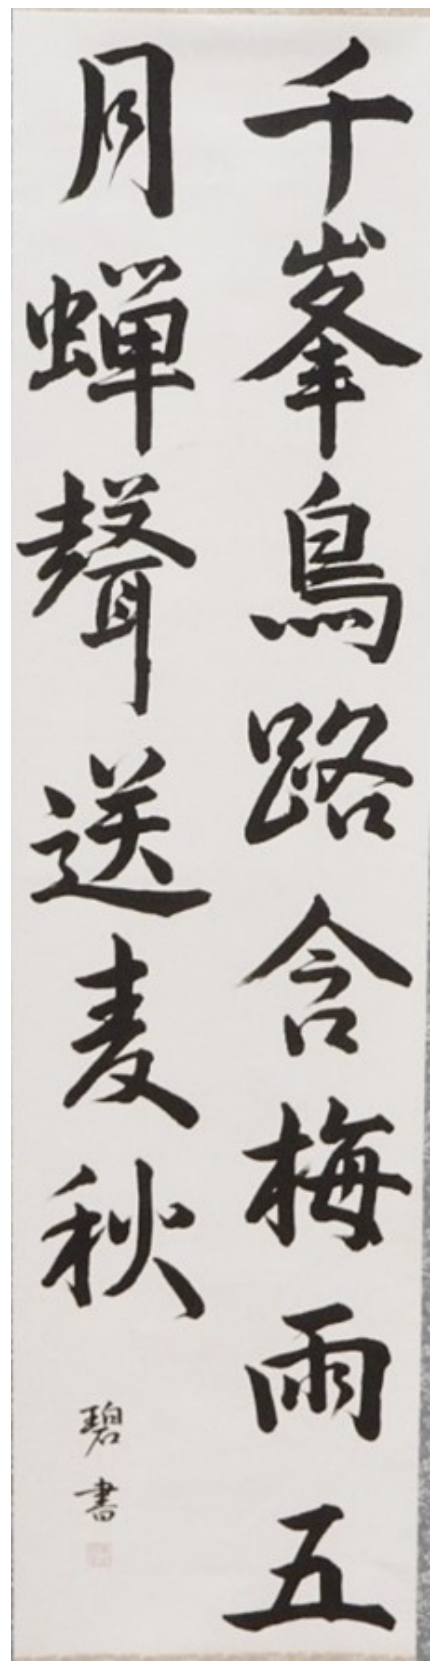 千峯鳥路含梅雨五
月蟬聲送麦秋
碧書